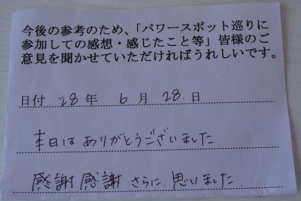 今後の参考のため、「パワースポット巡りに
参加しての感想・感じたこと等」皆様のご
意見を聞かせていただければうれしいです。
日付 28年 6月 28日
本日はありがとうございました
感謝感謝 さらに思いました